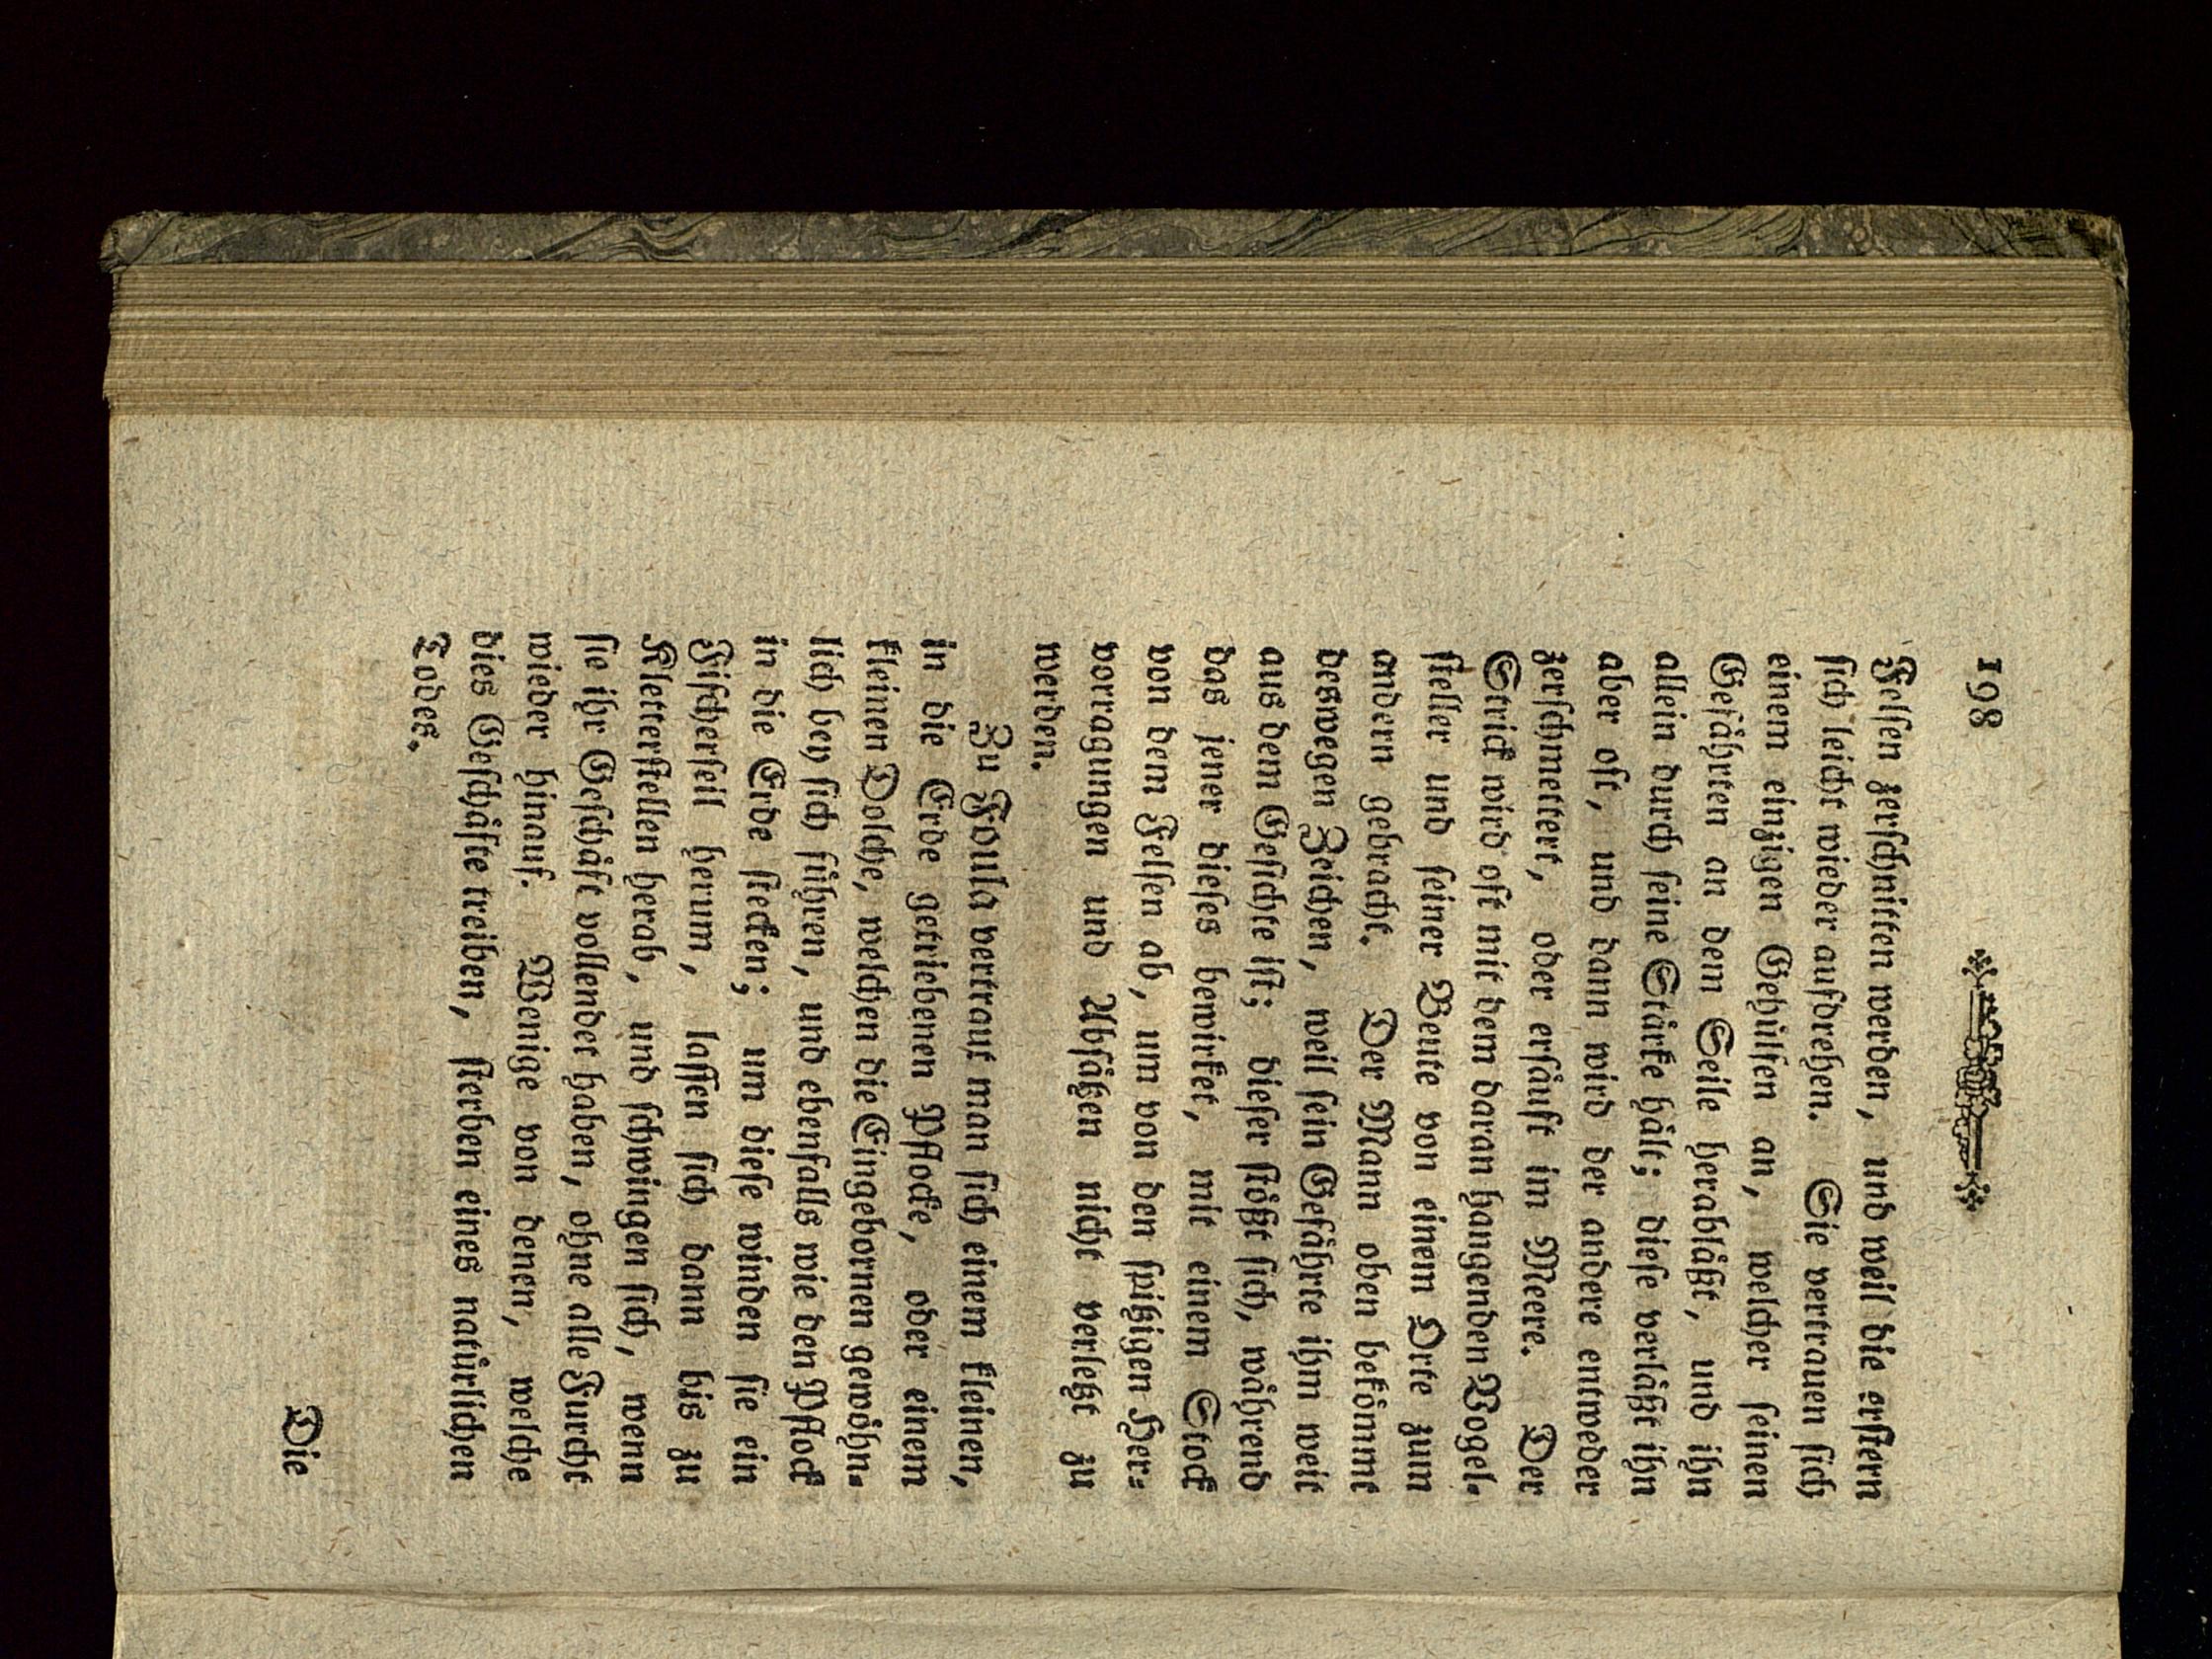 198
Felsen zerschnitten werden, und weil die erstern
sich leicht wieder aufdrehen. Sie vertrauen sich
einem einzigen Gehülfen an, welcher seinen
Gefährten an dem Seile herabläßt, und ihn
allein durch seine Stärke hält; diese verläßt ihn
aber oft, und dann wird der andere entweder
zerschmettert, oder ersäuft im Meere. Der
Strick wird oft mit dem daran hangenden Vogel-
steller und seiner Beute von einem Orte zum
andern gebracht. Der Mann oben bekömmt
deswegen Zeichen, weil sein Gefährte ihm weit
aus dem Gesichte ist; dieser stößt sich, während
das jener dieses bewirket, mit einem Stock
von dem Felsen ab, um von den spitzigen Her-
vorragungen und Absätzen nicht verletzt zu
werden.
Zu Foula vertraut man sich einem kleinen,
in die Erde getriebenen Pflocke, oder einem
kleinen Dolche, welchen die Eingebornen gewöhn-
lich bey sich führen, und ebenfalls wie den Pflock
in die Erde stecken; um diese winden sie ein
Fischerseil herum, lassen sich dann bis zu
Kletterstellen herab, und schwingen sich, wenn
sie ihr Geschäft vollendet haben, ohne alle Furcht
wieder hinauf. Wenige von denen, welche
dies Geschäfte treiben, sterben eines natürlichen
Todes.
Die